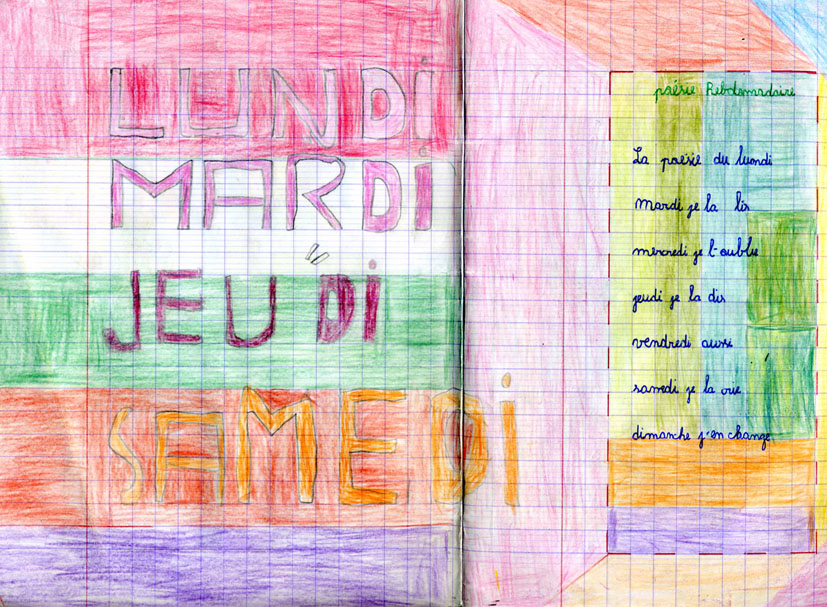 LUNDI
MARDI
JEUDI
SAMEDI
poésie Hebdomadaire
La poésie du luondi
mardi je la lis
mercredi je l'oublie
jeudi je la dis
vendredi aussi
samedi je la
dimanche j'en change